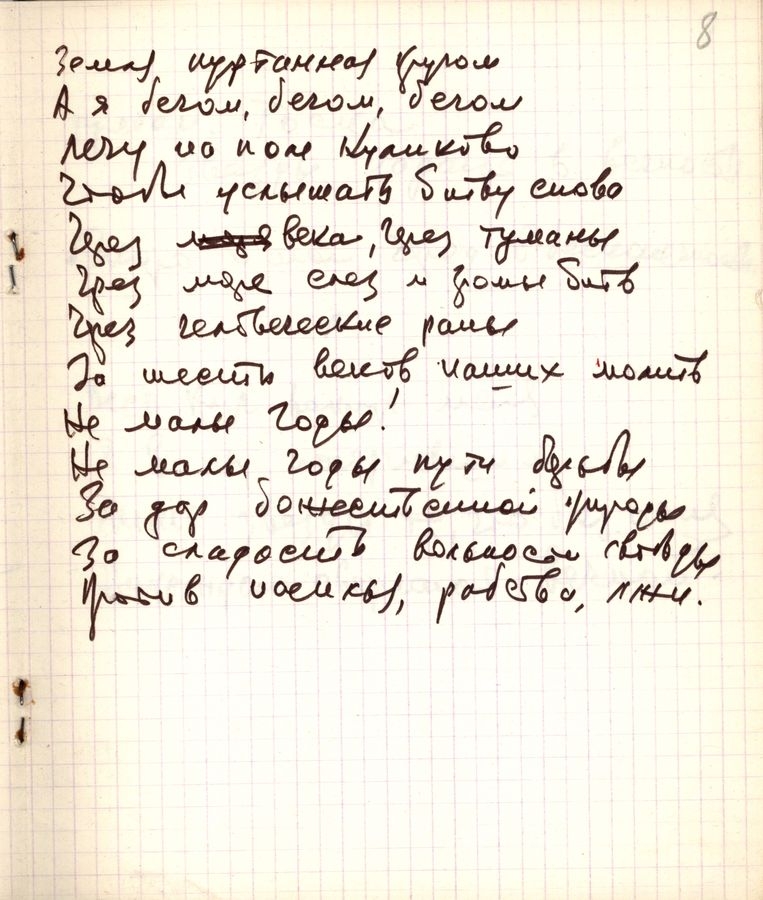 8
Земля кругом
А я бегом, бегом, бегом
Лечу на поле Куликово
Чтобы услышать битву снова
Через века, через туманы
Чрез море слез и громы битв
Чрез человеческие раны
За шесть веков наших молитв
Не малые годы!
Не малые годы пути борьбы
За дар божественной природы
За сладость вольности свободы
Против насилья, рабства, лжи.